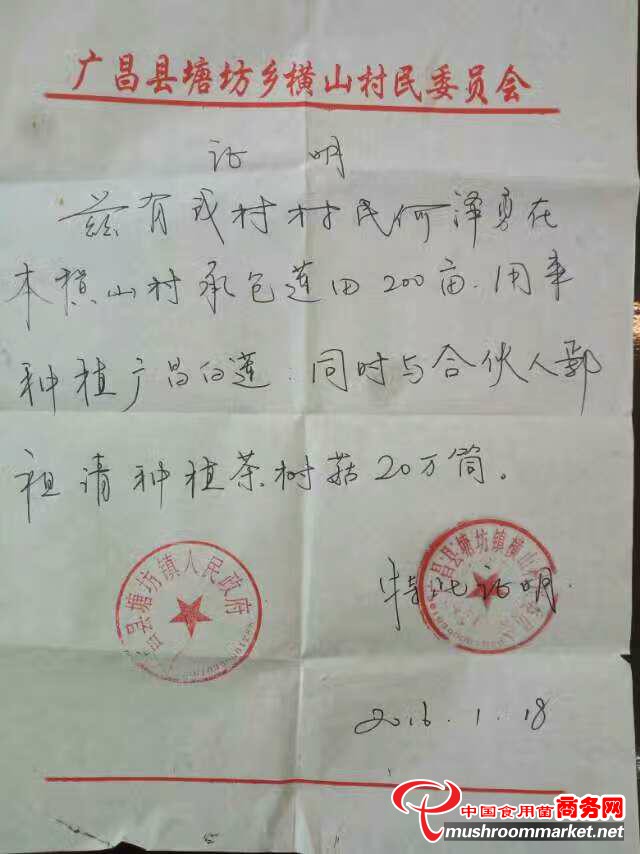 广昌县塘坊乡横山村民委员会
证 明
兹有我村村民何泽勇在
本横山村承包莲田200亩.用来
种植广昌白莲.同时与合伙人鄢
祖清种植茶树菇20万筒。
广昌县塘坊镇人民政府
广昌县塘坊镇横山
特此证明.
2016.1.18
中国食用菌商务网
mushroommarket.net